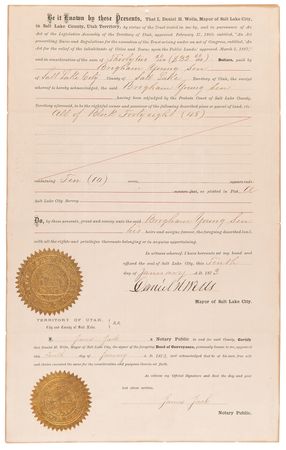 Be it Known by these Presents, That I, Daniel H. Wells, Mayor of Salt Lake City,
in Salt Lake County, Utah Territory, by virtue of the Trust vested in me by, and in pursuance of, An
Act of the Legislative Assembly of the Territory of Utah, approved February 17, 1869, entitled, "An Act
prescribing Rules and Regulations for the execution of the Trust arising under an act of Congress, entitled 'An
Act for the relief of the Inhabitants of Cities and Towns upon the Public Lands' approved March 2, 1867,"
and in consideration of the sum of Dollars, paid by
Brigham Young Sen
of Salt Lake City County of Salt Lake Territory of Utah, the receipt
whereof is hereby acknowledged, the said Brigham Young Sen
having been adjudged by the Probate Court of Salt Lake County,
Territory aforesaid, to be the rightful owner and possessor of the following described piece or parcel of land, viz:
All of Block Forty eight (48)
containing Ten (10)
as platted in Plat A
Salt Lake City Survey
Do, by these presents, grant and convey unto the said Brigham Young Sen
his heirs and assigns forever, the foregoing described land,
with all the rights and privileges thereunto belonging or in anywise appertaining.
In witness whereof, I have hereunto set my hand and
affixed the seal of Salt Lake City, this Tenth
day of January A.D. 1873
Daniel H Wells
Mayor of Salt Lake City.
TERRITORY OF UTAH,
City and County of Salt Lake. S.S.
I, James Jack a Notary Public in and for said County, Certify
that Daniel H. Wells, Mayor of Salt Lake City, the signer of the foregoing Deed of Conveyance, personally known to me, appeared
this Tenth day of January A.D. 1873, and acknowledged that he, of his own free will and
choice executed the same for the consideration and purposes therein set forth.
As witness my Official Signature and Seal the day and year
last above written.
James Jack
Notary Public.